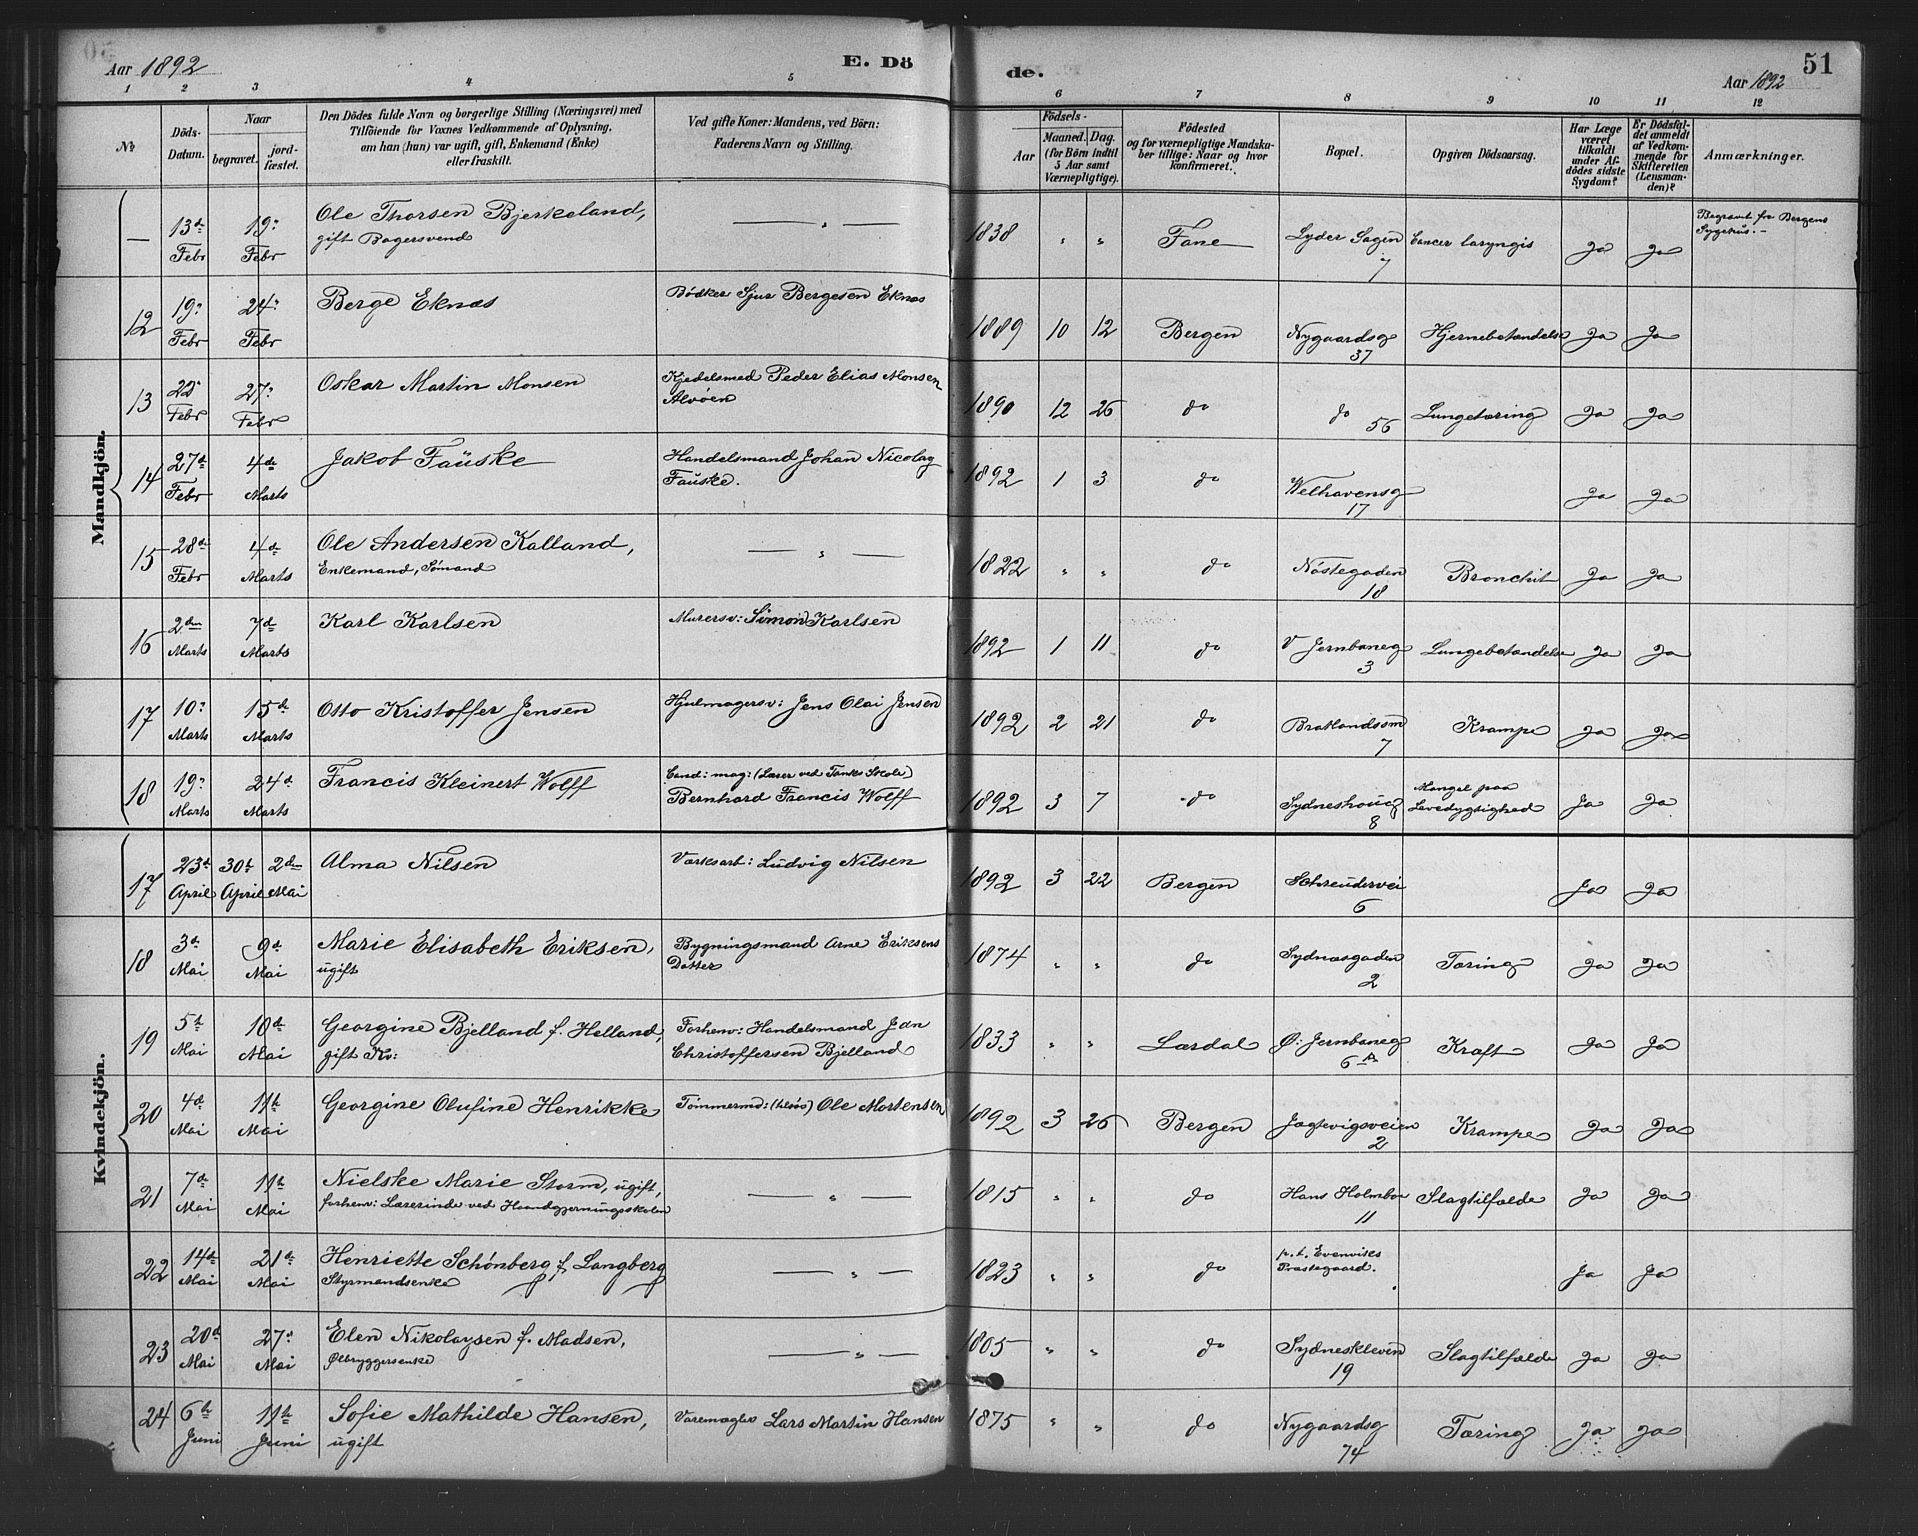 Aar 1892
E. Dö
de.
Aar 1892
51
1 2 3 4 5 6 7 8 9 10 11 12
No
Döds-
Datum.
Naar
begravet.
jord-
fæstet.
Den Dödes fulde Navn og borgerlige Stilling (Næringsvei) med
Tilföiende for Voxnes Vedkommende af Oplysning,
om han (hun) var ugift, gift, Enkemand (Enke)
eller fraskilt.
Ved gifte Koner: Mandens, ved Börn:
Faderens Navn og Stilling.
Födsels-
Aar
Maaned. Dag.
(for Börn indtil
5 Aar samt
Værnepligtige).
Födested
og for værnepligtige Mandska-
ber tillige: Naar og hvor
konfirmeret.
Bopæl.
Opgiven Dödsaarsag.
Har Læge
været
tilkaldt
under Af-
dödes sidste
Sygdom?
Er Dödsfal-
det anmeldt
af Vedkom-
mende for
Skifteretten
(Lensman-
den)?
Anmærkninger.
Mandkjön.
— 13de Febr 19n Febr Ole Thorsen Bjerkeland, — " — 1838 " " Fane Lyder Sagen Cancer laryngis Ja Ja Begravet fra Bergens
gift Bagersvend 7 Sygehus. -
12 19n Febr 24n Febr Berge Eknæs Bødker Sjur Bergesen Eknæs 1889 10 12 Bergen Nygaardsg Hjernebetændelse Ja Ja
37
13 Febr 27n Febr Oskar Martin Monsen Kjedelsmed Peder Elias Monsen 1890 12 26 do do Lungetæring Ja Ja
Alvøen 56
14 27de Febr 4de Marts Jakob Fauske Handelsmand Johan Nicolay 1892 1 3 do Welhavensg Ja Ja
Fauske. 17
15 28de Febr 4de Marts Ole Andersen Kalland, — " — 1822 " " do Nöstegaden Bronchit Ja Ja
Enkemand, Sømand 18
16 2den Marts 7de Marts Karl Karlsen Murersv: Simon Karlsen 1892 1 11 do V Jernbaneg Lungebetændelse Ja Ja
3
17 10n Marts 15de Marts Otto Kristoffer Jensen Hjulmagersv: Jens Olai Jensen 1892 2 21 do Bratlandsm Krampe Ja Ja
7
18 19n Marts 24d Marts Francis Kleinert Wolff Cand: mag: (Lærer ved Tanks Skole) 1892 3 7 do Sydneshoug Mangel paa Ja Ja
Bernhard Francis Wolff 8 Levedygtighed
Kvindekjön.
17 23d April 30te April 2den Mai Alma Nilsen Værksarb: Ludvig Nilsen 1892 3 22 Bergen Schreudervei Ja Ja
6
18 3de Mai 9de Mai Marie Elisabeth Eriksen, Bygningsmand Arne Eriksens 1874 " " do Sydnæsgaden Tæring Ja Ja
ugift Datter 2
19 5te Mai 10de Mai Georgine Bjelland f. Helland, Forhenv: Handelsmand Jan 1833 " " Lærdal Ø: Jernbaneg Kræft Ja Ja
gift Kv: Christoffersen Bjelland 6A
20 4de Mai 11te Mai Georgine Olufine Henrikke Tömmermd: Ole Mortensen 1892 3 26 Bergen Jægtevigsveien Krampe Ja Ja
2
21 7de Mai 11te Mai Nielske Marie Storm, ugift, — " — 1815 " " do Hans Holmboe Slagtilfælde Ja Ja
forhenv: Lærerinde ved Haandgjerningsskolen 11
22 14de Mai 21de Mai Henriette Schönberg f. Langberg — " — 1823 " " do p.t. Evenviks Ja Ja
Styrmandsenke Præstegaard.
23 20d Mai 27n Mai Elen Nikolaysen f. Madsen, — " — 1805 " " do Sydneskleven Slagtilfælde Ja Ja
Ølbryggersenke 19
24 6te Juni 11te Juni Sofie Mathilde Hansen, Varemægler Lars Martin Hansen 1875 " " do Nygaardsg Tæring Ja Ja
ugift 74